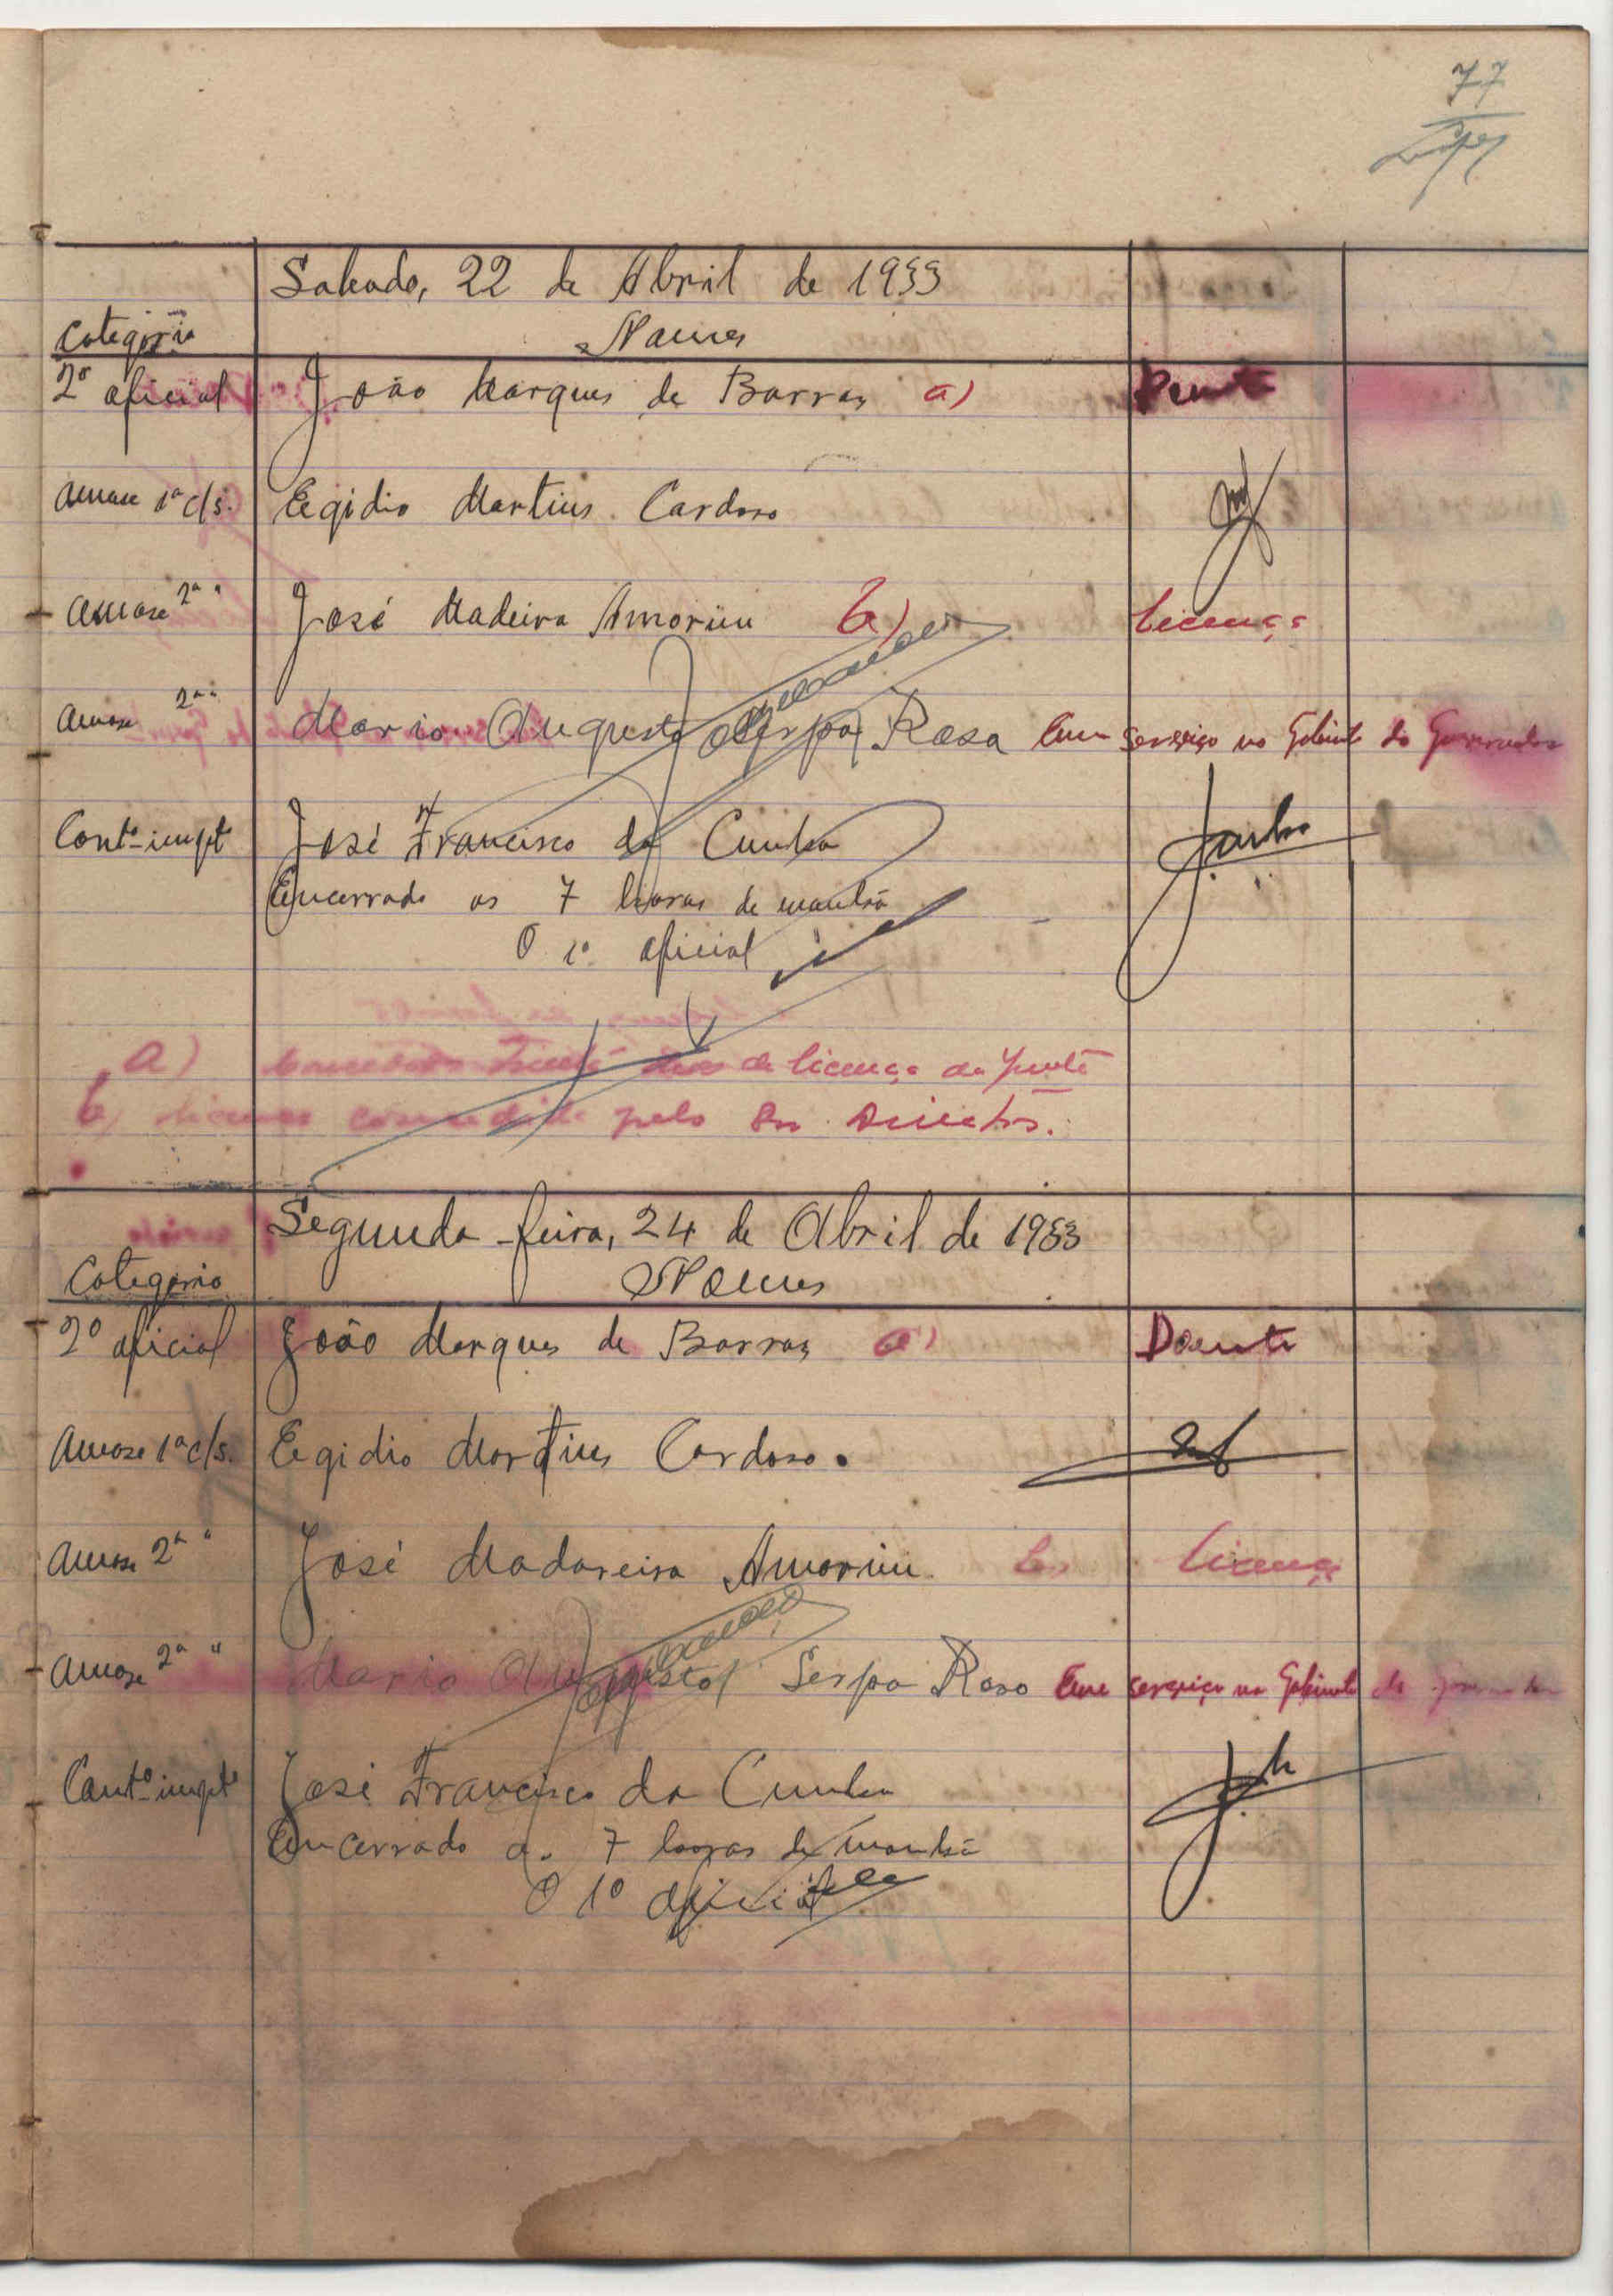 77
Lopes
Sabado, 22 de Abril de 1933
Categoria Nomes
2º oficial João Marques de Barros a) Doente
Amase 1ª cls. Egidio Martins Cardoso
Amase 2ª " José Madeira Amorim b) Licença
Amase 2ª " Mario Augusto Serpa Rosa Em serviço no Gabinete do Governador
Contº impt José Francisco da Cunha
Encerrado as 7 horas da manhã
O 1º oficial
a) dias de licença da Junta
b) licença concedida pelo Sr. Director.
Segunda-feira, 24 de Abril de 1933
Categoria Nomes
2º oficial João Marques de Barros a) Doente
Amase 1ª cls. Egidio Martins Cardoso.
Amase 2ª " José Madareira Amorim b) Licença
Amase 2ª " Mario Augusto Serpa Rosa Em serviço no Gabinete do Governador
Contº impto José Francisco da Cunha
Encerrado as 7 horas da manhã
O 1º oficial